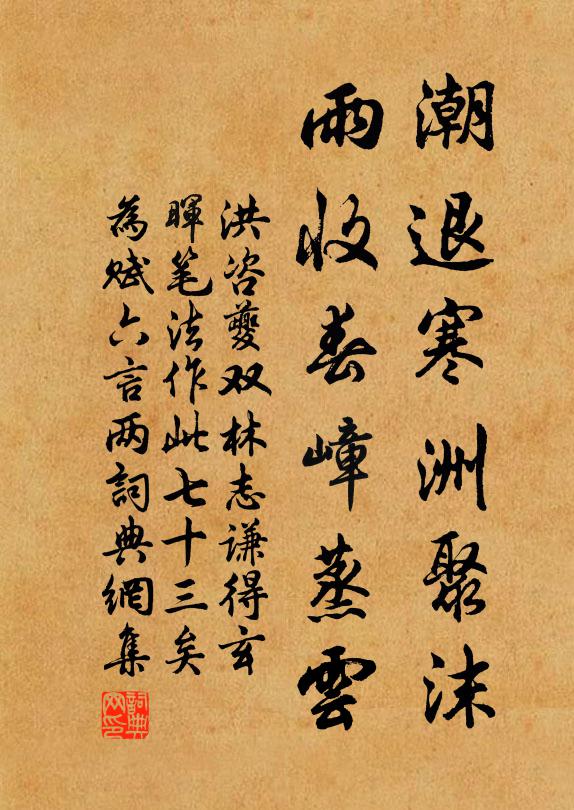 潮退寒洲聚沫
雨收春嶂蒸雲
洪咨夔双林志谦得玄
暉笔法作此七十三矣
為赋六言两詞典網集
詞典网印